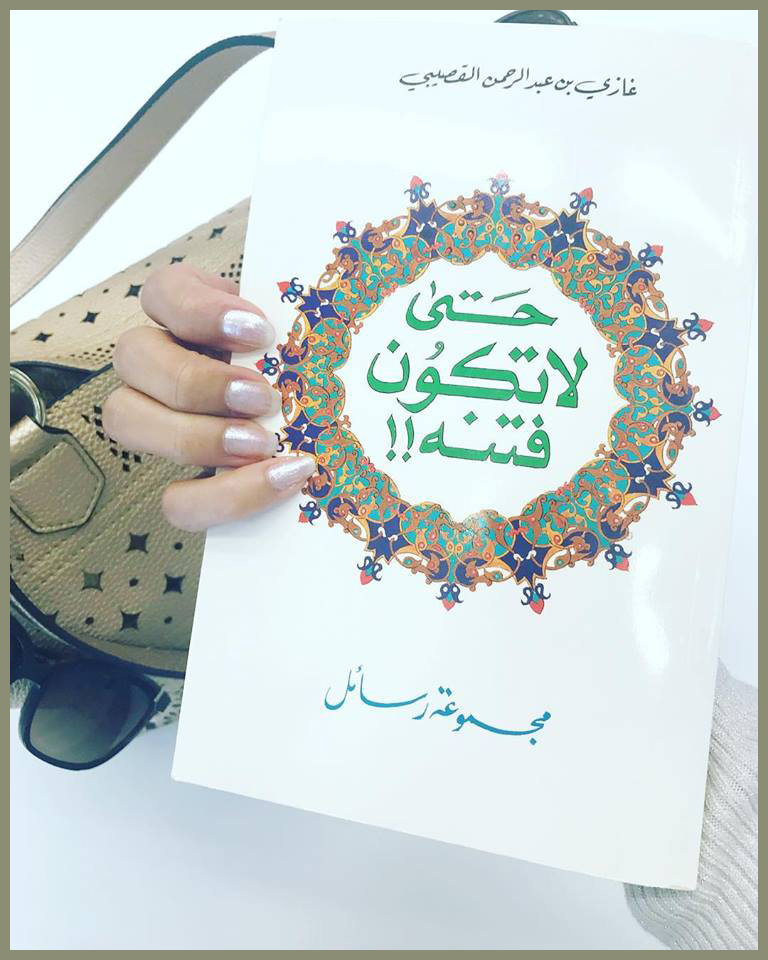 غازي بن عبد الرحمن القصيبي
حَتىٰ
لا تكوُن
فتنه!!
مجموعة رسائل